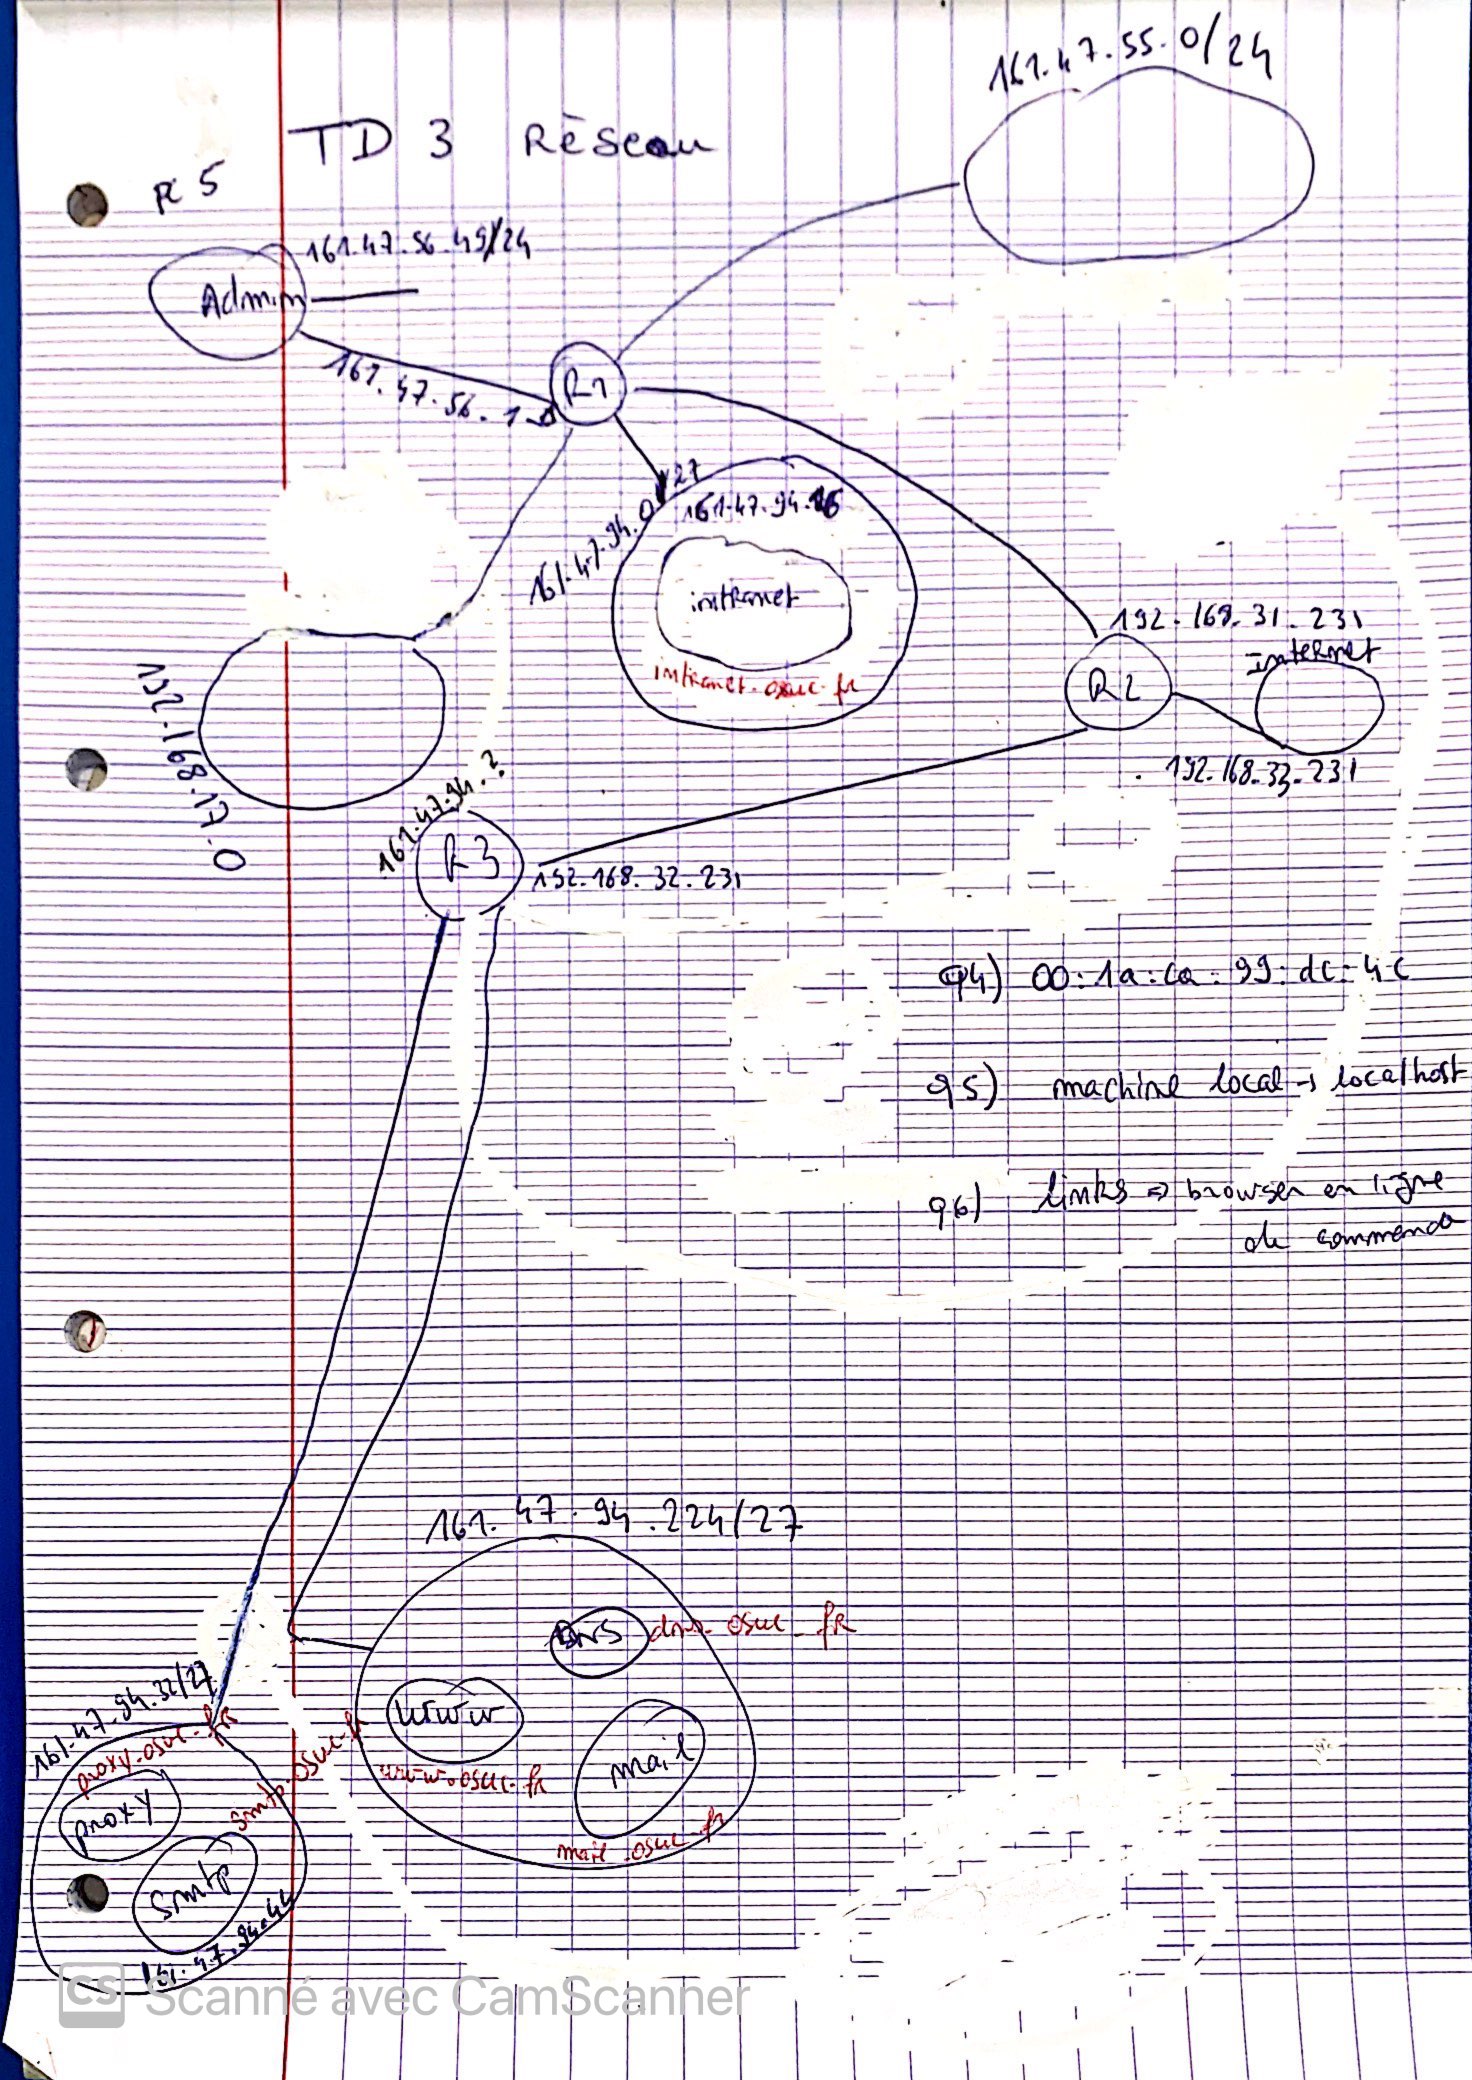 161.47.55.0/24
TD 3 Réseau
R 5
161.47.56.49/24
Admin
161.47.56.1
R1
/27
161.47.94.0
161.47.94.
intranet
intranet.osuc.fr
192.168.31.231
Internet
R2
192.168.33.231
192.168.17.0
161.47.94.?
R3
192.168.32.231
Q4) 00:1a:ca:99:dc:4c
Q5) machine local → localhost
Q6) links => browser en ligne
de commande
161.47.94.224/27
DNS dns.osuc.fr
www
www.osuc.fr
mail
mail.osuc.fr
161.47.94.32/27
proxy.osuc.fr
proxy
smtp.osuc.fr
smtp
161.47.94.44
CS Scanné avec CamScanner